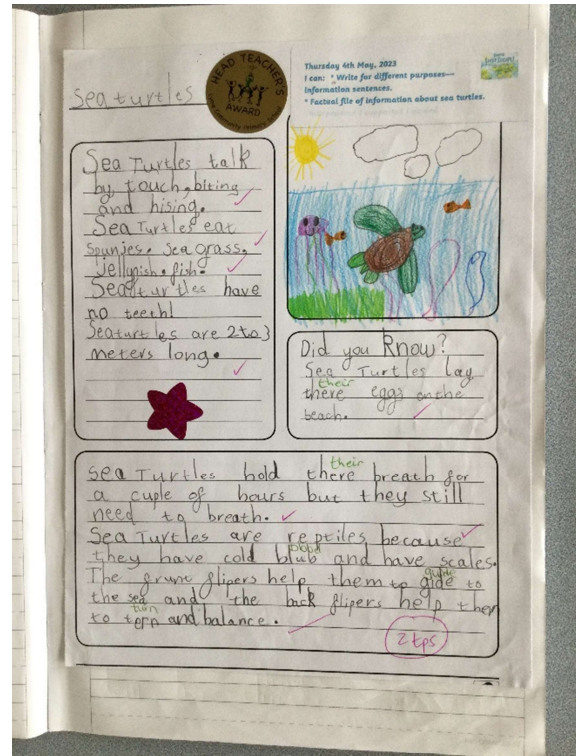 Sea turtles
HEAD TEACHER'S
AWARD
Thursday 4th May, 2023
I can: * Write for different purposes—
information sentences.
* Factual file of information about sea turtles.
Sea Turtles talk
by touch, biting
and hising.
Sea Turtles eat
spunjes. Sea grass.
Jellyfish. fish.
Sea turtles have
no teeth!
Seaturtles are 2 to 3
meters long.
Did you Know?
Sea Turtles lay
their
there eggs on the
beach.
their
sea Turtles hold there breath for
a cuple of hours but they still
need to breath.
Sea Turtles are reptiles because
blood
they have cold blub and have scales.
guide
The frunt flipers help them to gide to
the sea and the back flipers help them
turn
to tern and balance.
2 tps